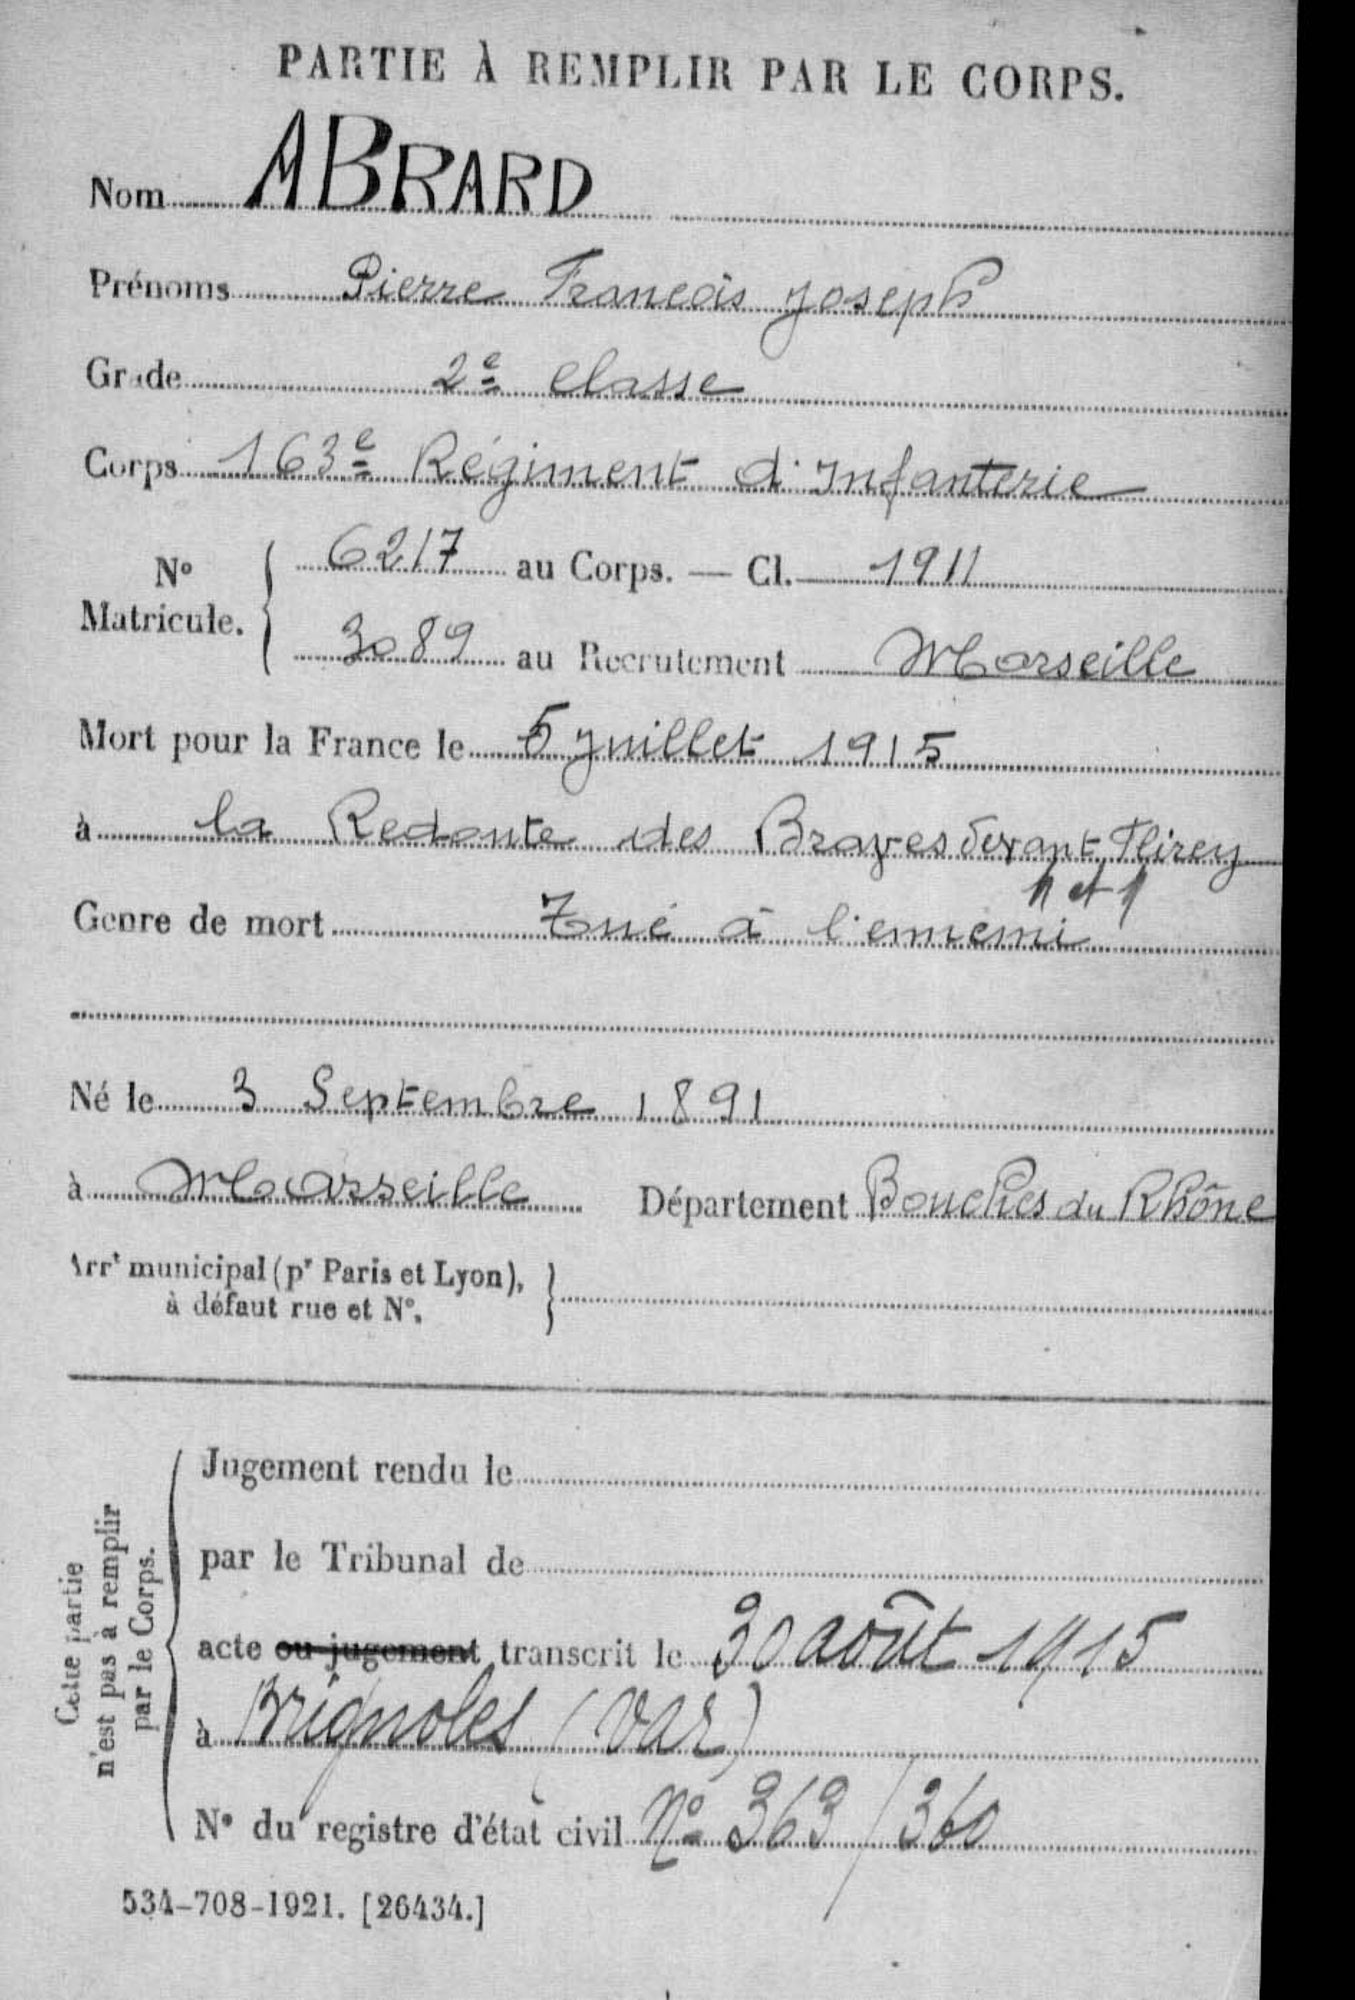 PARTIE À REMPLIR PAR LE CORPS.
Nom ABRARD
Prénoms Pierre Francois Joseph
Grade 2e classe
Corps 163e Régiment d'Infanterie
No Matricule. { 6217 au Corps. — Cl. 1911
3089 au Recrutement Marseille
Mort pour la France le 5 Juillet 1915
à la Redoute des Braves devant Flirey
M et M
Genre de mort Tué à l'ennemi
Né le 3 Septembre 1891
à Marseille Département Bouches du Rhône
Arrt municipal (pr Paris et Lyon),
à défaut rue et No.
Cette partie
n'est pas à remplir
par le Corps.
Jugement rendu le
par le Tribunal de
acte ou jugement transcrit le 30 août 1915
à Brignoles (Var)
No du registre d'état civil No 363/360
534-708-1921. [26434.]